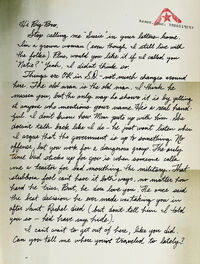 Hi Big Bro.
Stop calling me "Susie" in your letters home.
I'm a grown woman (even though I still live with
the folks). Plus, would you like it if I called you
"Nate?" Yeah, I didn't think so.
Things are OK in S.D. - not much changes around
here. The old man is the old man. I think he
misses you, but the only way he shows it is by yelling
at anyone who mentions your name. He's a real hand-
ful. I don't know how Mom puts up with him. She
doesn't talk back like I do - he just won't listen when
I argue that the government is up to something. No
offense, but you work for a dangerous group. The only
time Dad sticks up for you is when someone calls
you a traitor for bad mouthing the military. That
stubborn fool can't have it both ways, no matter how
hard he tries. But, he does love you. He once said
the best decision he ever made was taking you in
after Aunt Rachel died (but don't tell him I told
you so - he'd have my hide).
I can't wait to get out of here, like you did.
Can you tell me where you've traveled to lately?